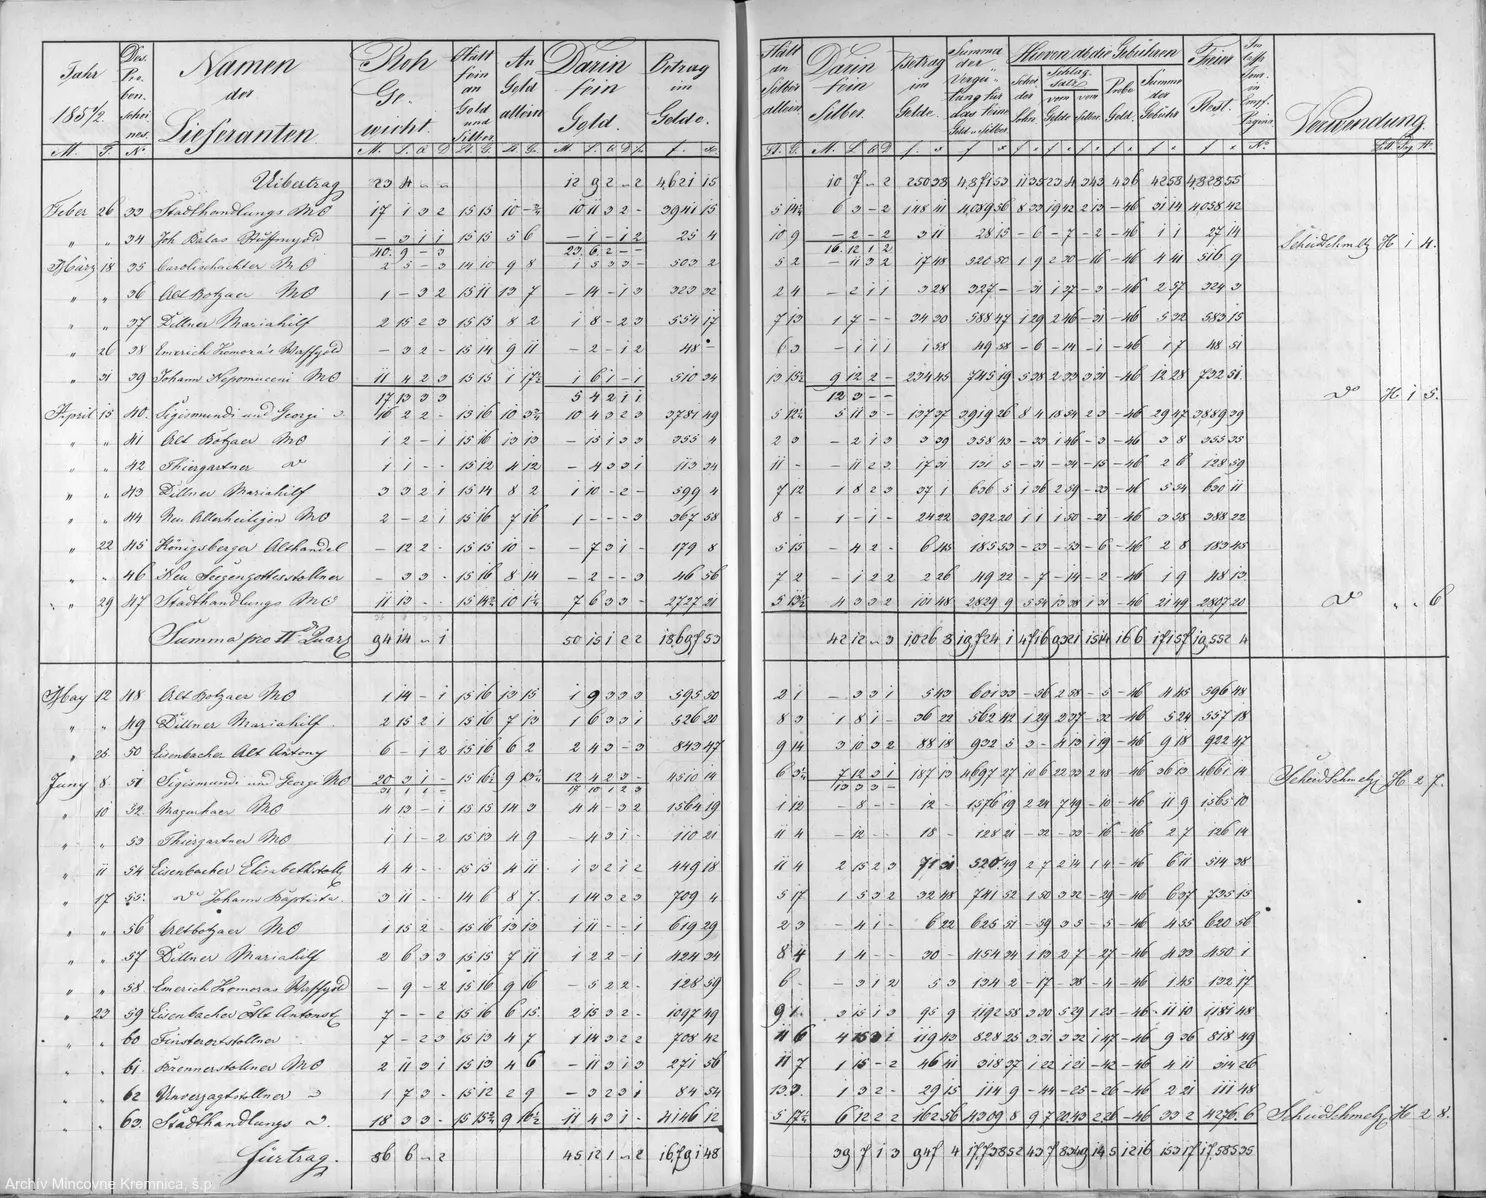 Jahr 1851/2. Des Probenscheines Namen der Lieferanten. Roh Gewicht. Hält fein an Gold und Silber An Gold allein Darin fein Gold. Betrag im Gelde.
Hält an Silber allein. Darin fein Silber. Betrag im Gelde. Summa der Vergütung für das feine Gold u Silber. Hievon ab die Gebühren Schei der Lohn. Schlag Satz vom Golde vom Silber. Probe Geld. Summe der Gebühr Freier Rest. Verwendung.
M. T. No M. L. Q D M. L. Q D f. x.
Uibertrag 23 4 - - 12 9 2 - 2 4,621 15 10 7 - 2 250 38 4,871 53 11 35 23 4 3 43 4 36 42 58 4,828 55
Feber 26 33 Stadthandlungs MO 17 1 3 2 15 15 10 - 10 11 3 2 - 3941 15 6 3 - 2 148 41 4089 56 8 33 19 42 2 13 - 46 31 14 4058 42
" " 34 - 3 1 1 15 15 5 6 - 1 - 1 2 25 4 10 9 - 2 - 2 3 11 28 15 - 6 - 7 - 2 - 46 1 1 27 14 H 1 4.
40. 9 - 3 23. 6 2 - 16. 12 1 2
März 18 35 Carolischachter MO 2 5 - 3 14 10 9 8 1 5 3 3 - 503 2 5 2 - 11 3 2 17 48 520 50 1 9 2 30 - 16 - 46 4 41 516 9
" " 36 Alt Botzaer MO 1 - 3 2 15 11 13 7 - 14 - 1 3 323 32 2 4 - 2 1 1 3 28 327 - - 31 1 37 - 3 - 46 2 57 324 3
" " 37 Dillner Mariahilf 2 15 2 3 15 15 8 2 1 8 - 2 3 554 17 7 13 1 7 - - 34 30 588 47 1 29 2 46 - 31 - 46 5 32 583 15
" 26 38 Emerich Komora's - 3 2 - 15 14 9 11 - 2 - 1 2 48 - 6 3 - 1 1 1 1 58 49 58 - 6 - 14 - 1 - 46 1 7 48 51
" 31 39 Johann Nepomuceni MO 11 4 2 3 15 15 1 17½ 1 6 1 - 1 510 34 13 15½ 9 12 2 - 234 45 745 19 5 38 2 33 3 31 - 46 12 28 732 51
17 13 3 3 5 4 2 1 1 12 3 - - H 1 5.
April 15 40. Sigismundi und Georgi 16 2 2 - 15 16 10 3½ 10 4 3 2 3 3781 49 5 12½ 5 11 3 - 137 37 3919 26 8 4 18 54 2 3 - 46 29 47 3889 39
" " 41 Alt Botzaer MO 1 2 - 1 15 16 13 13 - 15 1 3 3 355 4 2 3 - 2 1 3 3 39 358 43 - 33 1 46 - 3 - 46 3 8 355 35
" " 42 Thiergartner 1 1 - - 15 12 4 12 - 4 3 3 1 113 34 11 - - 11 2 3 17 31 131 5 - 31 - 34 - 15 - 46 2 6 128 59
" " 43 Dillner Mariahilf 3 3 2 1 15 14 8 2 1 10 - 2 - 599 4 7 12 1 8 2 3 37 1 636 5 1 36 2 59 - 33 - 46 5 54 630 11
" " 44 Neu Allerheiligen MO 2 - 2 1 15 16 7 16 1 - - - 3 367 58 8 - 1 - 1 - 24 22 392 20 1 1 1 50 - 21 - 46 3 58 388 22
" 22 45 Königsberger Althandel - 12 2 - 15 15 10 - - 7 3 1 - 179 8 5 15 - 4 2 - 6 45 185 53 - 23 - 53 - 6 - 46 2 8 183 45
" " 46 Neu Seegengottesstollner - 3 3 - 15 16 8 14 - 2 - - 3 46 56 7 2 - 1 2 2 2 26 49 22 - 7 - 14 - 2 - 46 1 9 48 13
" 29 47 Stadthandlungs MO 11 13 - - 15 14½ 10 1½ 7 6 3 3 - 2727 21 5 13½ 4 3 3 2 101 48 2829 9 5 54 13 38 1 31 - 46 21 49 2807 20 " " 6
Summa pro II Quart. 94 14 - 1 50 15 1 2 2 18,697 53 42 12 - 3 1,026 8 19,724 1 47 16 93 21 15 14 16 6 171 57 19,552 4
May 12 48 Alt Botzaer MO 1 14 - 1 15 16 13 15 1 9 3 3 3 595 50 2 1 - 3 3 1 5 43 601 33 - 56 2 58 - 5 - 46 4 45 596 48
" " 49 Dillner Mariahilf 2 15 2 1 15 16 7 13 1 6 3 3 1 526 20 8 3 1 8 1 - 36 22 562 42 1 29 2 37 - 32 - 46 5 24 557 18
" 25 50 Eisenbacher Alt Antony 6 - 1 2 15 16 6 2 2 4 3 - 3 843 47 9 14 3 10 3 2 88 18 932 5 3 - 4 13 1 19 - 46 9 18 922 47
Juny 8 51 Sigismundi und Georgi MO 20 3 1 - 15 16½ 9 13½ 12 4 2 3 - 4510 14 6 3½ 7 12 3 1 187 13 4697 27 10 6 22 33 2 48 - 46 36 13 4661 14 H 2 7.
31 1 1 - 17 10 1 2 3 13 3 3 -
" 10 52 Magurkaer MO 4 13 - 1 15 15 14 3 4 4 - 3 2 1564 19 1 12 - 8 - - 12 - 1576 19 2 24 7 49 - 10 - 46 11 9 1565 10
" " 53 Thiergartner MO 1 1 - 2 15 13 4 9 - 4 3 1 - 110 21 11 4 - 12 - - 18 - 128 21 - 32 - 33 - 16 - 46 2 7 126 14
" 11 54 Eisenbacher Elisabethstolle 4 4 - - 15 15 4 11 1 3 2 1 2 449 18 11 4 2 15 2 3 71 31 520 49 2 7 2 14 1 4 - 46 6 11 514 38
" 17 55. Johann Baptista 3 11 - - 14 6 8 7. 1 14 3 2 3 709 4 5 17 1 5 3 2 32 48 741 52 1 50 3 32 - 29 - 46 6 37 735 15
" " 56 Altbotzaer MO 1 15 2 - 15 16 13 13 1 11 - - 1 619 29 2 3 - 4 1 - 6 22 625 51 - 59 3 5 - 5 - 46 4 55 620 56
" " 57 Dillner Mariahilf 2 6 3 3 15 15 7 11 1 2 2 - 1 424 34 8 4 1 4 - - 30 - 454 34 1 13 2 7 - 27 - 46 4 33 450 1
" " 58 Emerich Komoras - 9 - 2 15 16 9 16 - 5 2 2 - 128 59 6 - - 3 1 2 5 3 134 2 - 17 - 38 - 4 - 46 1 45 132 17
" 23 59 Eisenbacher Alt Antonst 7 - - 2 15 16 6 15 2 15 3 2 - 1097 49 9 1 3 15 1 3 95 9 1192 58 3 30 5 29 1 25 - 46 11 10 1181 48
" " 60 Finsterortstollner 7 - 2 3 15 13 4 7 1 14 3 2 2 708 42 11 6 119 43 828 25 3 31 3 32 1 47 - 46 9 36 818 49
" " 61 Brennerstollner MO 2 11 3 1 15 13 4 6 - 11 3 1 3 271 56 11 7 1 15 - 2 46 41 318 37 1 22 1 21 - 42 - 46 4 11 314 26
" " 62 Unverzagtstollner 1 7 3 - 15 12 2 9 - 3 2 3 1 84 54 13 3 1 3 2 - 29 15 114 9 - 44 - 25 - 26 - 46 2 21 111 48
" " 63 Stadthandlungs 18 3 3 - 15 15½ 9 16½ 11 4 3 1 - 4146 12 5 17½ 6 12 2 2 162 56 4309 8 9 7 20 43 2 26 - 46 33 2 4276. 6 H 2 8.
Fürtrag. 86 6 - 2 45 12 1 - 2 16,791 48 39 7 1 3 947 4 17,738 52 43 7 83 49 14 5 12 16 153 17 17,585 35
Archív Mincovne Kremnica, š.p.